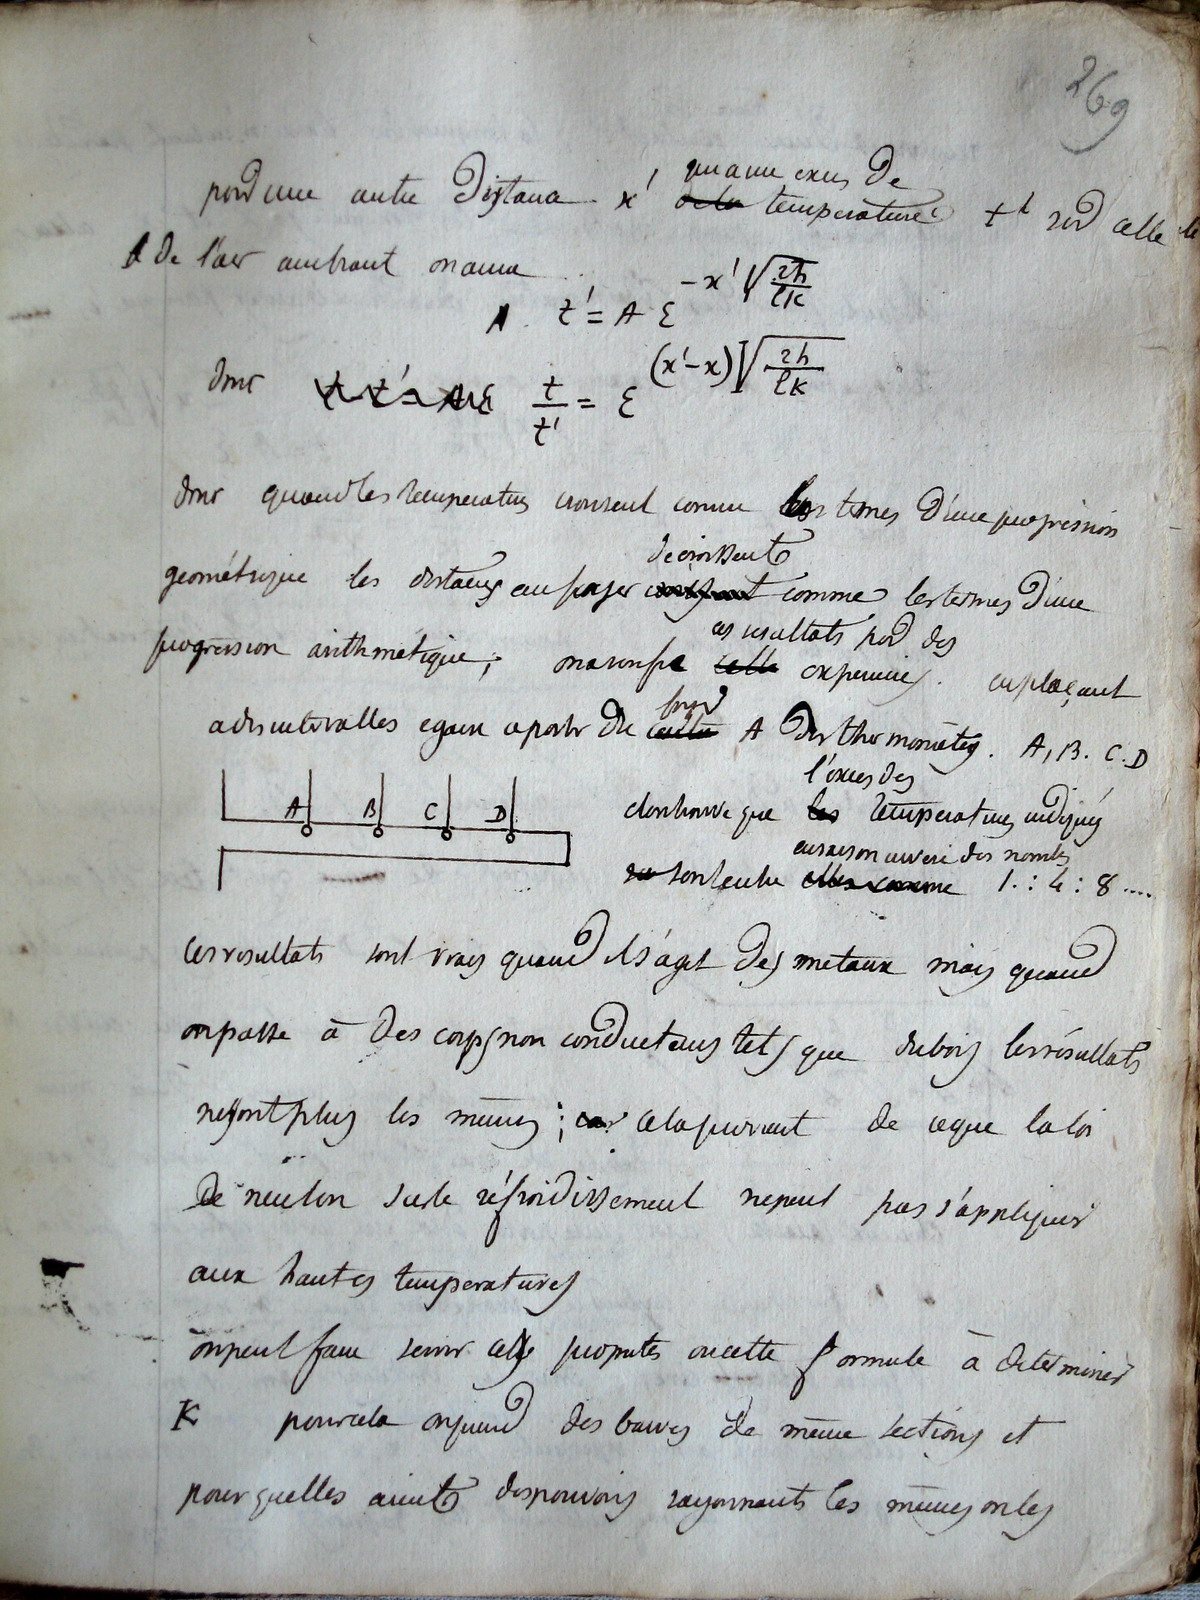 269
pour une autre distance x' qu'a un exces de temperature t' sur celle
de l'air ambiant on aura
t' = A ε^{-x' √(2h/lK)}
donc t/t' = ε^{(x'-x) √(2h/lK)}
donc quand les temperatures croissent comme les termes d'une progression
decroissent
geométrique les distances au foyer comme les termes d'une
ces resultats par des
progression arithmétique; on a verifié experiences. en plaçant
a des intervalles egaux a partir du A des thermomètres. A, B. C. D
l'exces des
A B C D
on trouve que temperatures indiqués
en raison inverse des nombres
sont entre 1. : 4 : 8 ....
ces resultats sont vrais quand il s'agit des metaux mais quand
on passe à des corps non conducteurs tels que du bois les résultats
ne sont plus les mêmes; cela provient de ce que la loi
De neuton sur le réfroidissement ne peut pas s'appliquer
aux hautes temperatures
on peut faire servir cette formule à déterminer
K pour cela on prend des barres de même sections et
pour qu'elles aient des pouvoirs rayonnants les mêmes on les